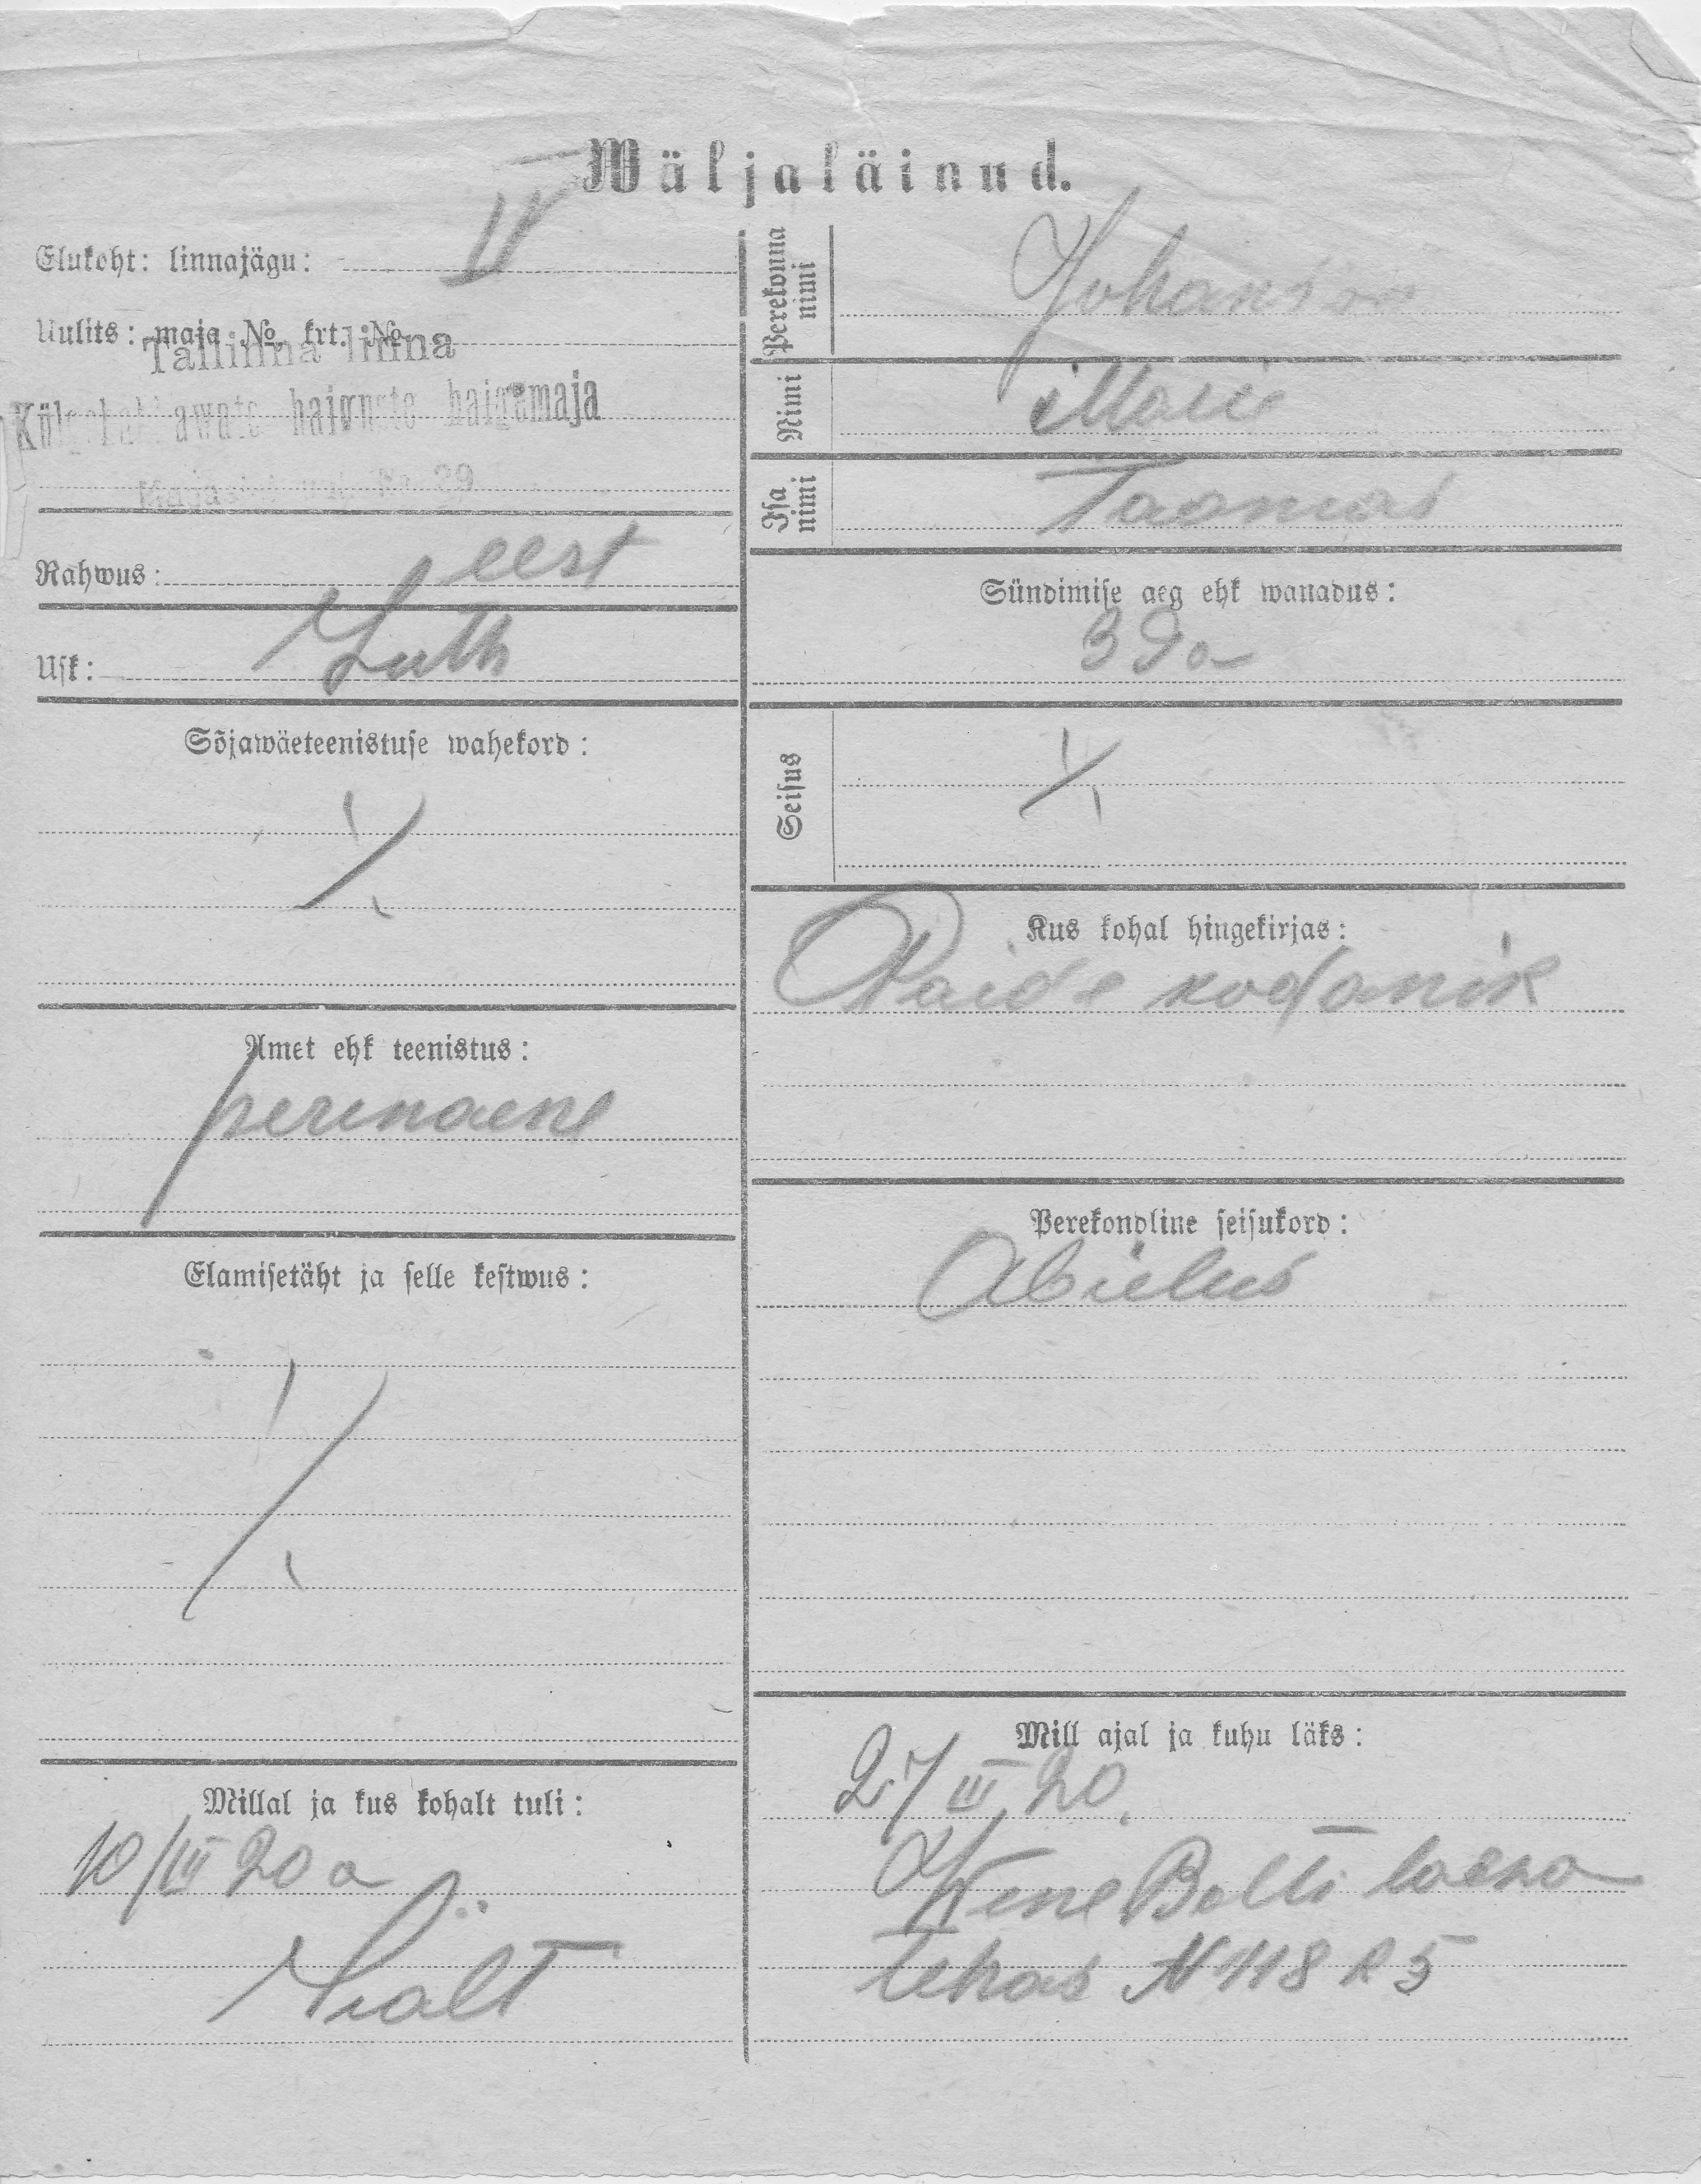 Wäljaläinud.
Elukoht: linnajägu: IV
Uulits: maja № krt. №
Tallinna linna
haigemaja
Rahwus: eest
Usk: Luth
Sõjawäeteenistuse wahekord:
Amet ehk teenistus:
perenaene
Elamisetäht ja selle kestwus:
Millal ja kus kohalt tuli:
10/III 20 a
Sialt
Perekonna nimi Johanson
Nimi Marie
Isa nimi Taomas
Sündimise aeg ehk wanadus:
39 a
Seisus
Kus kohal hingekirjas:
Paide kodanik
Perekondline seisukord:
Abielus
Mill ajal ja kuhu läks:
27/III 20.
Wene Balti laewa
tehas N 118 k 5